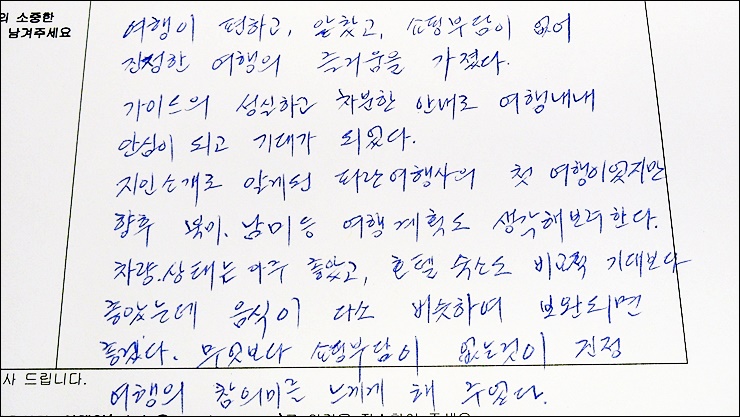 의 소중한
남겨주세요
여행이 편하고, 알찼고, 쇼핑부담이 없어
진정한 여행의 즐거움을 가졌다.
가이드의 성실하고 차분한 안내로 여행내내
안심이 되고 기대가 되었다.
지인소개로 알게된 파란여행사의 첫 여행이었지만
향후 북미. 남미등 여행계획도 생각해보려한다.
차량.상태는 아주 좋았고, 호텔 숙소도 비교적 기대보다
좋았는데 음식이 다소 비슷하여 보완되면
좋겠다. 무엇보다 쇼핑부담이 없는것이 진정
사 드립니다.
여행의 참의미를 느끼게 해 주었다.